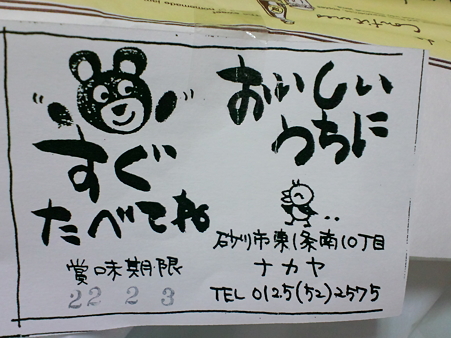 Confitures
おいしい
うちに
すぐ
たべてね
賞味期限
22 2 3
砂川市東1条南10丁目
ナカヤ
TEL 0125(52)2575